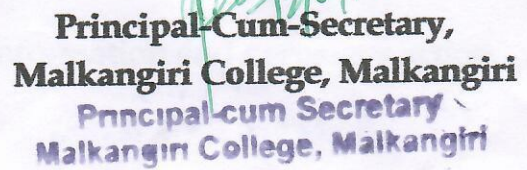 Principal-Cum-Secretary,
Malkangiri College, Malkangiri
Principal-cum Secretary
Malkangiri College, Malkangiri